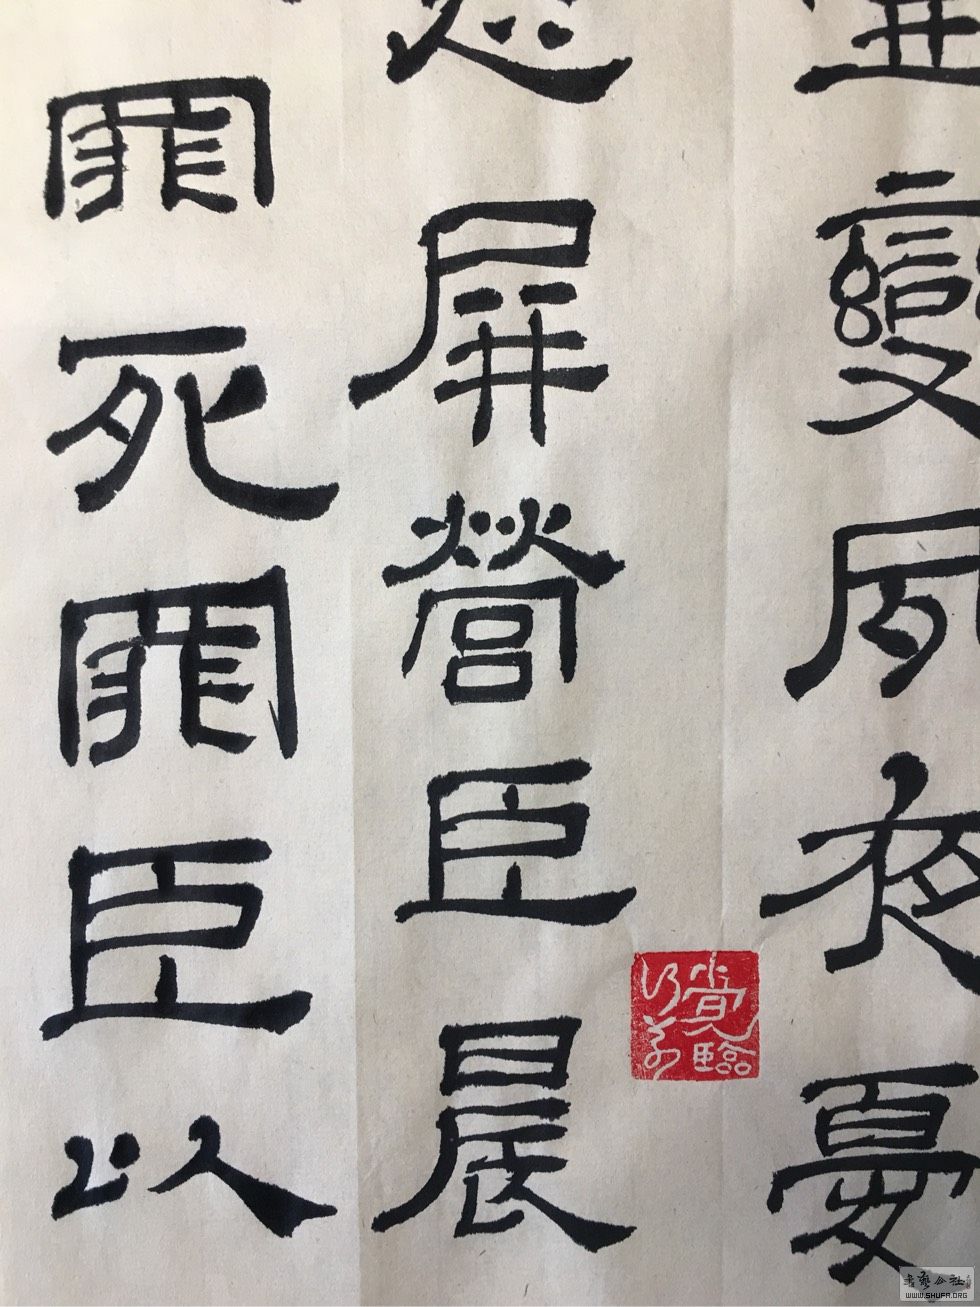 變夙夜憂
屏營臣晨
罪死罪臣以
臨
書藝公社
WWW.SHUFA.ORG